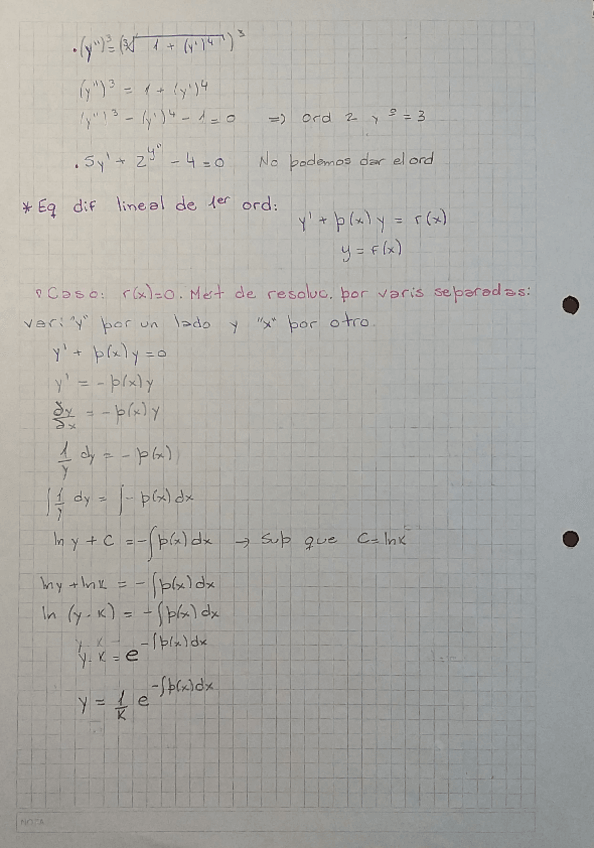 . (y'')³ = (∛ 1 + (y')⁴ )³
(y'')³ = 1 + (y')⁴
(y'')³ - (y')⁴ - 1 = 0 => ord 2 y º = 3
. 5y' + 2^y'' - 4 = 0 No podemos dar el ord
* Eq dif lineal de 1er ord:
y' + p(x) y = r(x)
y = f(x)
Caso: r(x)=0. Mét de resoluc. por varis separadas:
vari "y" por un lado y "x" por otro.
y' + p(x) y = 0
y' = - p(x) y
∂y/∂x = - p(x) y
1/y dy = - p(x)
∫ 1/y dy = ∫ - p(x) dx
ln y + C = - ∫ p(x) dx → Sup que C = ln k
ln y + ln k = - ∫ p(x) dx
ln (y . k) = - ∫ p(x) dx
y. k = e^-∫p(x)dx
y = 1/k e^-∫p(x)dx
NOTA